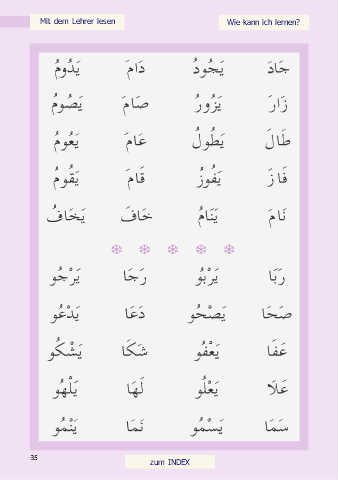 Mit dem Lehrer lesen
Wie kann ich lernen?
جَادَ يَجُودُ دَامَ يَدُومُ
زَارَ يَزُورُ صَامَ يَصُومُ
طَالَ يَطُولُ عَامَ يَعُومُ
فَازَ يَفُوزُ قَامَ يَقُومُ
نَامَ يَنَامُ خَافَ يَخَافُ
رَبَا يَرْبُو رَجَا يَرْجُو
صَحَا يَصْحُو دَعَا يَدْعُو
عَفَا يَعْفُو شَكَا يَشْكُو
عَلَا يَعْلُو لَهَا يَلْهُو
سَمَا يَسْمُو نَمَا يَنْمُو
35
zum INDEX